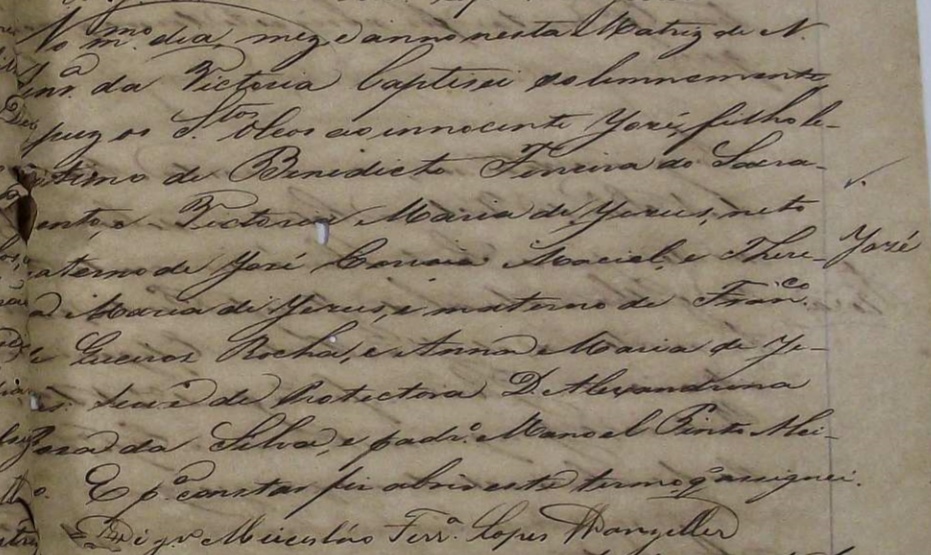 No m.mo dia, mez, e anno nesta Matriz de N.
Snr.a da Victoria baptisei solemnemente
puz os S.tos Oleos ao innocente José, filho le-
gitimo de Benedicto Ferreira do Sacra-
mento, e Victoria Maria de Jesus, neto
paterno de José Correia Maciel, e There-
José
Maria de Jesus, e materno de Fran.co
de Rocha, e Anna Maria de Je-
sus: de Protectora D. Alexandrina
Rosa da Silva, e padr.o Manoel Pinto Mei-
E p.a constar fiz abrir este termo, q. assignei.
O Lopes